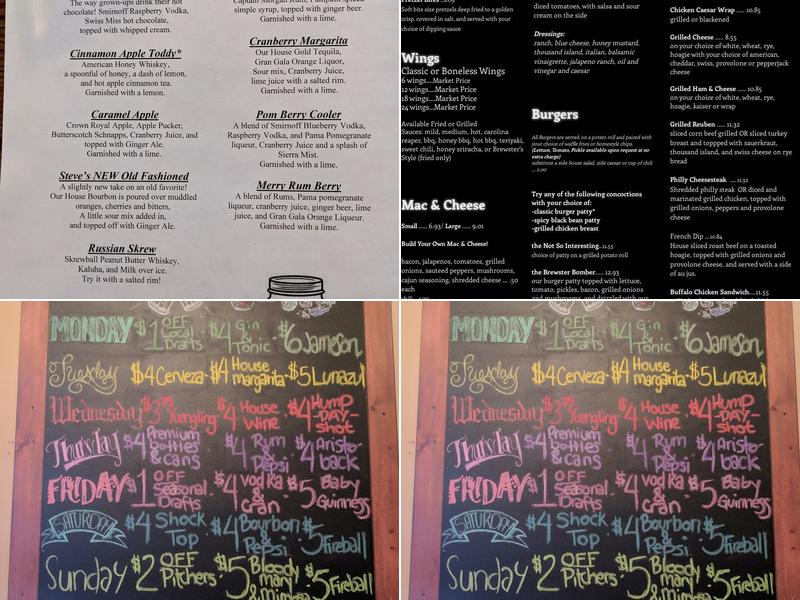 The way grown-ups drink their hot
chocolate! Smirnoff Raspberry Vodka,
Swiss Miss hot chocolate,
topped with whipped cream.
Cinnamon Apple Toddy*
American Honey Whiskey,
a spoonful of honey, a dash of lemon,
and hot apple cinnamon tea.
Garnished with a lemon.
Caramel Apple
Crown Royal Apple, Apple Pucker,
Butterscotch Schnapps, Cranberry Juice, and
topped with Ginger Ale.
Garnished with a lime.
Steve's NEW Old Fashioned
A slightly new take on an old favorite!
Our House Bourbon is poured over muddled
oranges, cherries and bitters,
A little sour mix added in,
and topped off with Ginger Ale.
Russian Skrew
Skrewball Peanut Butter Whiskey,
Kaluha, and Milk over ice.
Try it with a salted rim!
simple syrup, topped with ginger beer.
Garnished with a lime.
Cranberry Margarita
Our House Gold Tequila,
Gran Gala Orange Liquor,
Sour mix, Cranberry Juice,
lime juice with a salted rim.
Garnished with a lime.
Pom Berry Cooler
A blend of Smirnoff Blueberry Vodka,
Raspberry Vodka, and Pama Pomegranate
liqueur, Cranberry Juice and a splash of
Sierra Mist.
Garnished with a lime.
Merry Rum Berry
A blend of Rums, Pama pomegranate
liqueur, cranberry juice, ginger beer, lime
juice, and Gran Gala Orange Liqueur.
Garnished with a lime.
Soft bite size pretzels deep fried to a golden
crisp, covered in salt, and served with your
choice of dipping sauce
Wings
Classic or Boneless Wings
6 wings....Market Price
12 wings....Market Price
18 wings....Market Price
24 wings....Market Price
Available Fried or Grilled
Sauces: mild, medium, hot, carolina
reaper, bbq, honey bbq, hot bbq, teriyaki,
sweet chili, honey sriracha, or Brewster's
Style (fried only)
Mac & Cheese
Small ..... 6.93/ Large ..... 9.01
Build Your Own Mac & Cheese!
bacon, jalapenos, tomatoes, grilled
onions, sauteed peppers, mushrooms,
cajun seasoning, shredded cheese ... .50
each
diced tomatoes, with salsa and sour
cream on the side
Dressings:
ranch, blue cheese, honey mustard,
thousand island, italian, balsamic
vinaigrette, jalapeno ranch, oil and
vinegar and caesar
Burgers
All Burgers are served on a potato roll and paired with
your choice of waffle fries or homestyle chips.
(Lettuce, Tomato, Pickle available upon request at no
extra charge)
substitute a side house salad, side caesar or cup of chili
... 2.00
Try any of the following concoctions
with your choice of:
-classic burger patty*
-spicy black bean patty
-grilled chicken breast
the Not So Interesting..11.55
choice of patty on a grilled potato roll
the Brewster Bomber..... 12.93
our burger patty topped with lettuce,
tomato, pickles, bacon, grilled onions
and mushrooms, and drizzled with our
Chicken Caesar Wrap ..... 10.85
grilled or blackened
Grilled Cheese ..... 8.55
on your choice of wheat, white, rye,
hoagie with your choice of american,
cheddar, swiss, provolone or pepperjack
cheese
Grilled Ham & Cheese ..... 10.85
on your choice of white, wheat, rye,
hoagie, kaiser or wrap
Grilled Reuben ..... 11.32
sliced corn beef grilled OR sliced turkey
breast and toppped with sauerkraut,
thousand island, and swiss cheese on rye
bread
Philly Cheesesteak ..... 11.32
Shredded philly steak OR diced and
marinated grilled chicken, topped with
grilled onions, peppers and provolone
cheese
French Dip ...10.84
House sliced roast beef on a toasted
hoagie, topped with grilled onions and
provolone cheese, and served with a side
of au jus.
Buffalo Chicken Sandwich....11.55
MONDAY $1 OFF Local Drafts $4 Gin & Tonic · $6 Jameson
Tuesday $4 Cerveza · $4 House margarita · $5 Lunazul
Wednesday $3.75 Yuengling · $4 House Wine $4 HUMP -DAY- shot
Thursday $4 Premium bottles & Cans $4 Rum & Pepsi $4 Aristo-back
FRIDAY $1 OFF Seasonal Drafts $4 vodka & cran · $5 Baby Guinness
SATURDAY $4 Shock Top $4 Bourbon & Pepsi · $5 Fireball
Sunday $2 OFF Pitchers · $5 Bloody mary & Mimosa $5 Fireball
MONDAY $1 OFF Local Drafts $4 Gin & Tonic · $6 Jameson
Tuesday $4 Cerveza · $4 House margarita · $5 Lunazul
Wednesday $3.75 Yuengling · $4 House Wine $4 HUMP -DAY- shot
Thursday $4 Premium bottles & Cans $4 Rum & Pepsi $4 Aristo-back
FRIDAY $1 OFF Seasonal Drafts $4 vodka & cran · $5 Baby Guinness
SATURDAY $4 Shock Top $4 Bourbon & Pepsi · $5 Fireball
Sunday $2 OFF Pitchers · $5 Bloody mary & Mimosa $5 Fireball